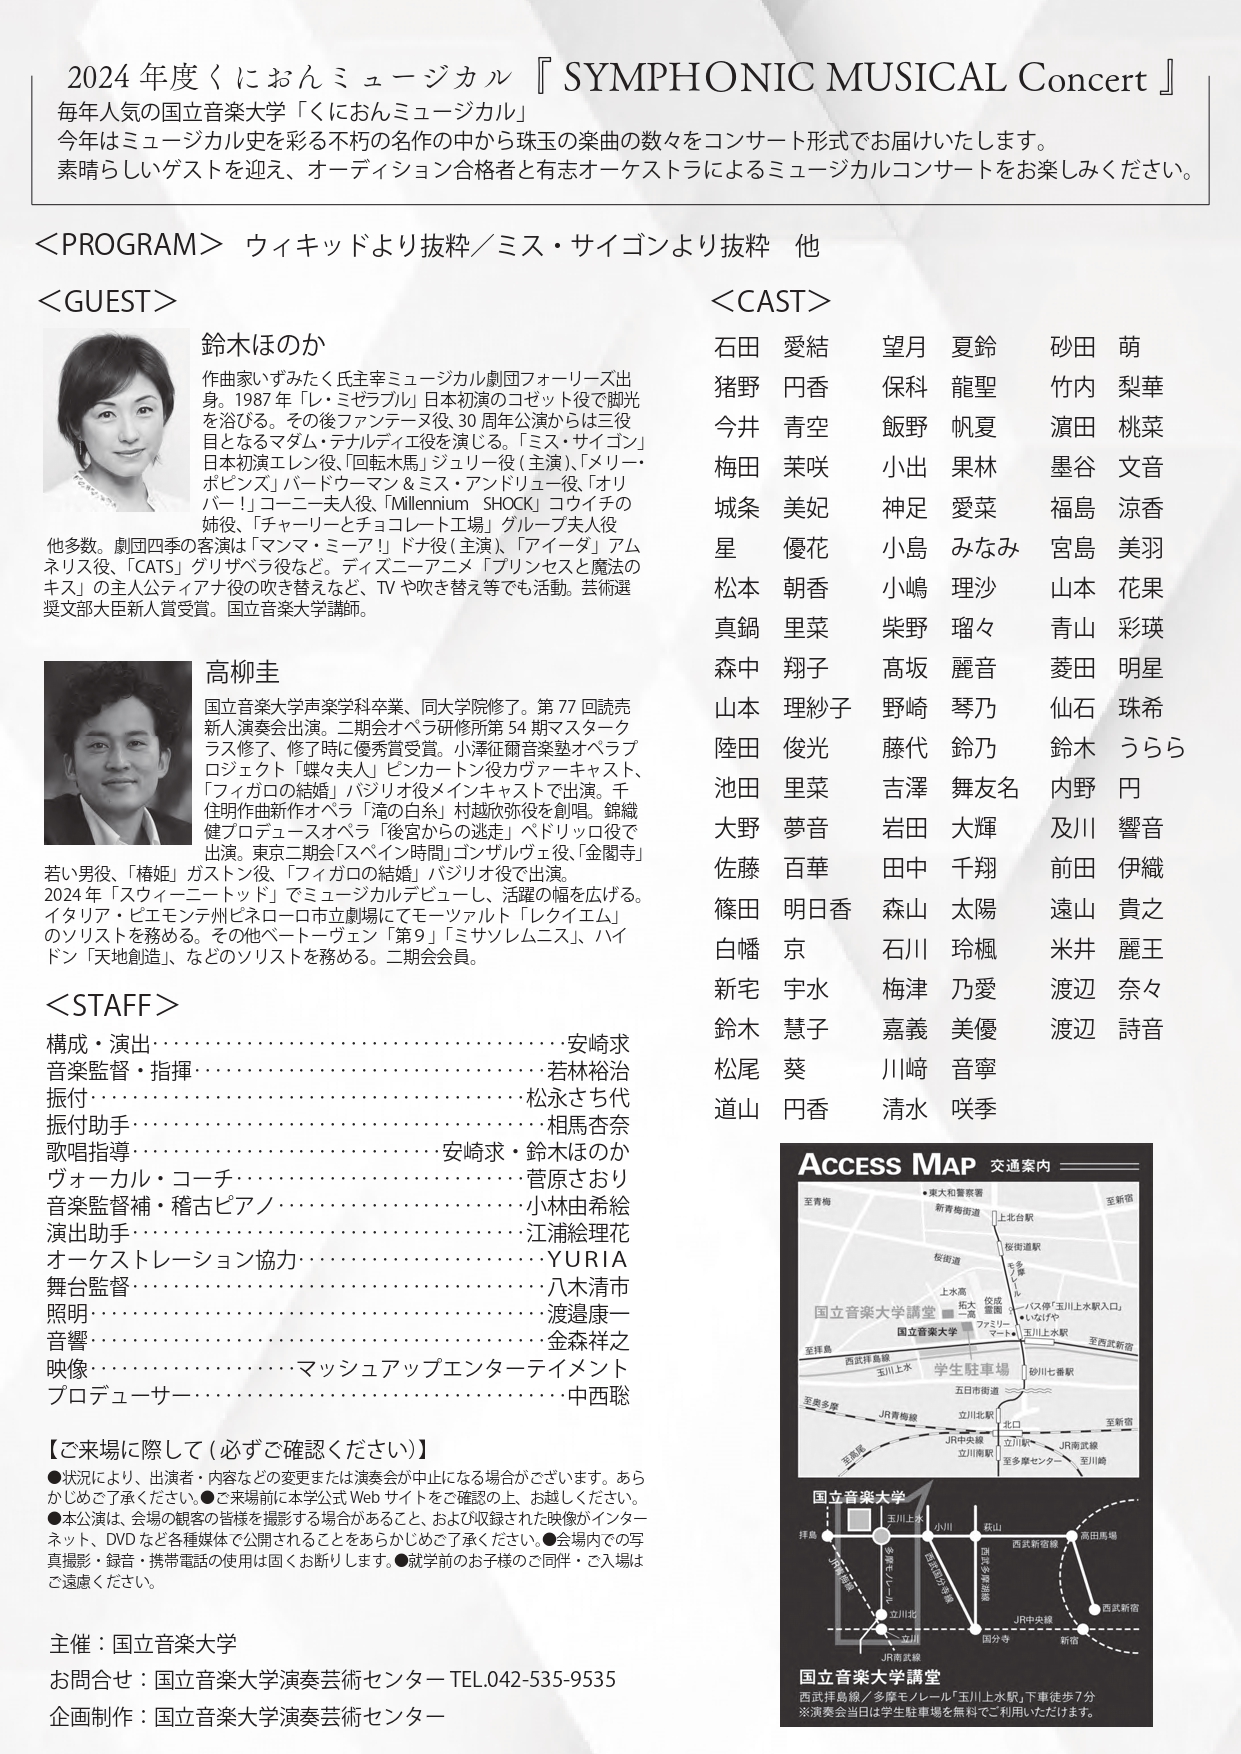 2024 年度くにおんミュージカル『 SYMPHONIC MUSICAL Concert 』
毎年人気の国立音楽大学「くにおんミュージカル」
今年はミュージカル史を彩る不朽の名作の中から珠玉の楽曲の数々をコンサート形式でお届けいたします。
素晴らしいゲストを迎え、オーディション合格者と有志オーケストラによるミュージカルコンサートをお楽しみください。
＜PROGRAM＞ ウィキッドより抜粋／ミス・サイゴンより抜粋　他
＜GUEST＞
鈴木ほのか
作曲家いずみたく氏主宰ミュージカル劇団フォーリーズ出
身。1987 年「レ・ミゼラブル」日本初演のコゼット役で脚光
を浴びる。その後ファンテーヌ役、30 周年公演からは三役
目となるマダム・テナルディエ役を演じる。「ミス・サイゴン」
日本初演エレン役、「回転木馬」ジュリー役 ( 主演 )、「メリー・
ポピンズ」バードウーマン & ミス・アンドリュー役、「オリ
バー！」コーニー夫人役、「Millennium　SHOCK」コウイチの
姉役、「チャーリーとチョコレート工場」グループ夫人役
他多数。劇団四季の客演は「マンマ・ミーア！」ドナ役 ( 主演 )、「アイーダ」アム
ネリス役、「CATS」グリザベラ役など。ディズニーアニメ「プリンセスと魔法の
キス」の主人公ティアナ役の吹き替えなど、TV や吹き替え等でも活動。芸術選
奨文部大臣新人賞受賞。国立音楽大学講師。
高柳圭
国立音楽大学声楽学科卒業、同大学院修了。第 77 回読売
新人演奏会出演。二期会オペラ研修所第 54 期マスターク
ラス修了、修了時に優秀賞受賞。小澤征爾音楽塾オペラプ
ロジェクト「蝶々夫人」ピンカートン役カヴァーキャスト、
「フィガロの結婚」バジリオ役メインキャストで出演。千
住明作曲新作オペラ「滝の白糸」村越欣弥役を創唱。錦織
健プロデュースオペラ「後宮からの逃走」ペドリッロ役で
出演。東京二期会「スペイン時間」ゴンザルヴェ役、「金閣寺」
若い男役、「椿姫」ガストン役、「フィガロの結婚」バジリオ役で出演。
2024 年「スウィーニートッド」でミュージカルデビューし、活躍の幅を広げる。
イタリア・ピエモンテ州ピネローロ市立劇場にてモーツァルト「レクイエム」
のソリストを務める。その他ベートーヴェン「第９」「ミサソレムニス」、ハイ
ドン「天地創造」、などのソリストを務める。二期会会員。
＜STAFF＞
構成・演出････････････････････安崎求
音楽監督・指揮････････････････････若林裕治
振付････････････････････松永さち代
振付助手････････････････････相馬杏奈
歌唱指導････････････････････安崎求・鈴木ほのか
ヴォーカル・コーチ････････････････････菅原さおり
音楽監督補・稽古ピアノ････････････････････小林由希絵
演出助手････････････････････江浦絵理花
オーケストレーション協力････････････････････YURIA
舞台監督････････････････････八木清市
照明････････････････････渡邉康一
音響････････････････････金森祥之
映像････････････････････マッシュアップエンターテイメント
プロデューサー････････････････････中西聡
【ご来場に際して ( 必ずご確認ください )】
●状況により、出演者・内容などの変更または演奏会が中止になる場合がございます。あら
かじめご了承ください。●ご来場前に本学公式 Web サイトをご確認の上、お越しください。
●本公演は、会場の観客の皆様を撮影する場合があること、および収録された映像がインター
ネット、DVD など各種媒体で公開されることをあらかじめご了承ください。●会場内での写
真撮影・録音・携帯電話の使用は固くお断りします。●就学前のお子様のご同伴・ご入場は
ご遠慮ください。
主催：国立音楽大学
お問合せ：国立音楽大学演奏芸術センター TEL.042-535-9535
企画制作：国立音楽大学演奏芸術センター
＜CAST＞
石田　愛結　望月　夏鈴　砂田　萌
猪野　円香　保科　龍聖　竹内　梨華
今井　青空　飯野　帆夏　濵田　桃菜
梅田　茉咲　小出　果林　墨谷　文音
城条　美妃　神足　愛菜　福島　涼香
星　優花　小島　みなみ　宮島　美羽
松本　朝香　小嶋　理沙　山本　花果
真鍋　里菜　柴野　瑠々　青山　彩瑛
森中　翔子　髙坂　麗音　菱田　明星
山本　理紗子　野崎　琴乃　仙石　珠希
陸田　俊光　藤代　鈴乃　鈴木　うらら
池田　里菜　吉澤　舞友名　内野　円
大野　夢音　岩田　大輝　及川　響音
佐藤　百華　田中　千翔　前田　伊織
篠田　明日香　森山　太陽　遠山　貴之
白幡　京　石川　玲楓　米井　麗王
新宅　宇水　梅津　乃愛　渡辺　奈々
鈴木　慧子　嘉義　美優　渡辺　詩音
松尾　葵　川﨑　音寧
道山　円香　清水　咲季
ACCESS MAP 交通案内
至青梅
●東大和警察署
至新宿
新青梅街道
上北台駅
桜街道駅
桜街道
多摩モノレール
上水高
拓大一高
佼成霊園
バス停「玉川上水駅入口」
●いなげや
国立音楽大学講堂
国立音楽大学
ファミリーマート●
玉川上水駅
至拝島
至西武新宿
西武拝島線
玉川上水
学生駐車場
砂川七番駅
五日市街道
至奥多摩
JR青梅線
立川北駅
北口
至新宿
JR中央線
立川駅
JR南武線
至高尾
立川南駅
至多摩センター
至川崎
国立音楽大学
玉川上水
拝島
小川
萩山
高田馬場
西武新宿線
JR青梅線
多摩モノレール
西武国分寺線
西武多摩湖線
立川北
西武新宿
JR中央線
立川
国分寺
新宿
JR南武線
国立音楽大学講堂
西武拝島線／多摩モノレール「玉川上水駅」下車徒歩７分
※演奏会当日は学生駐車場を無料でご利用いただけます。